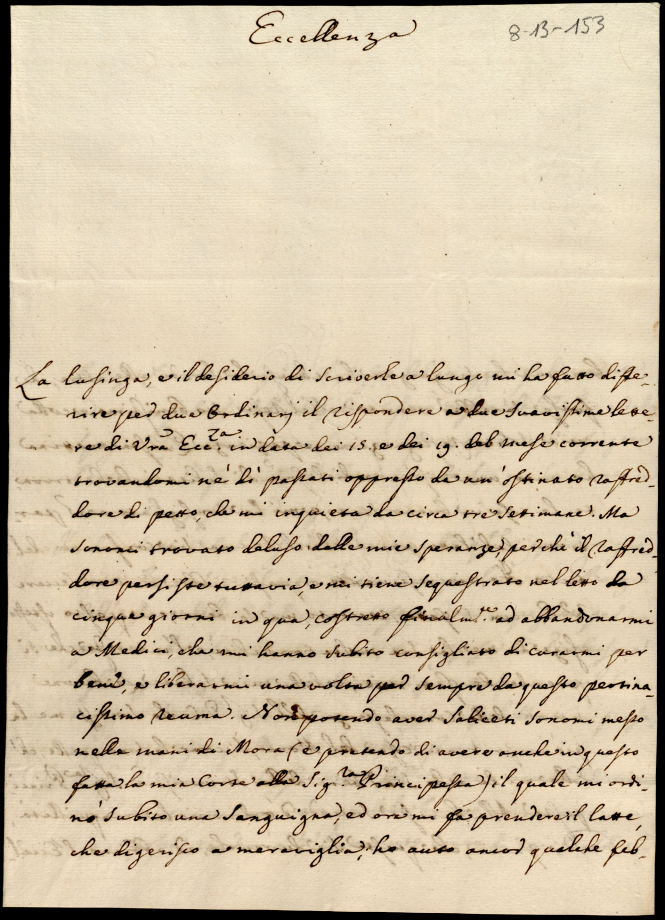 Eccellenza
8-13-153
La lusinga, e il desiderio di scriverle a lungo mi ha fatto diffe-
rire per due Ordinarj il rispondere a due suavissime lette-
re di Vra Eccza. in data dei 15, e dei 19. del mese corrente
trovandomi ne' dì passati oppresso da un' ostinato raffred-
dore di petto, che mi inquieta da circa tre setimane. Ma
sonomi trovato deluso dalle mie speranze, perchè il raffred-
dore persiste tuttavia, e mi tiene sequestrato nel letto da
cinque giorni in qua, costretto finalmte. ad abbandonarmi
a Medici, che mi hanno subito consigliato di curarmi per
bene, e liberarmi una volta per sempre da questo pertina-
cissimo reuma. Non potendo aver Saliceti sonomi messo
nelle mani di Mora (e pretendo di avere anche in questo
fatta la mia Corte alla Sigra. Principessa) il quale mi ordi-
nò subito una sanguigna, ed ora mi fa prendere il latte,
che digerisco a meraviglia, ho auto ancor qualche feb-